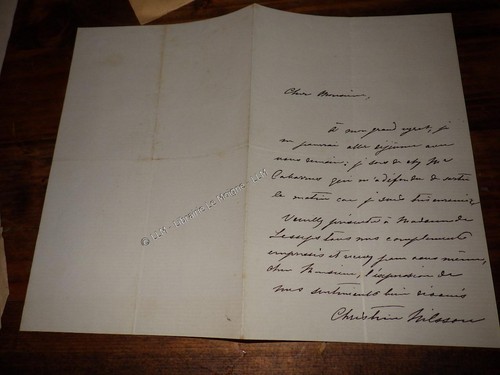 Cher Monsieur,
à mon grand regret, je
ne pourrai aller déjeuner avec
vous demain; je sors de chez Mr
Cabarrus qui m'a défendu de sortir
le matin car je suis très
Veuillez présenter à Madame de
Lesseps tous mes compliments
empressés et pour vous même,
cher Monsieur, l'expression de
mes sentiments bien
Christine Nilsson
© LCM - Librairie La Malgue - LCM